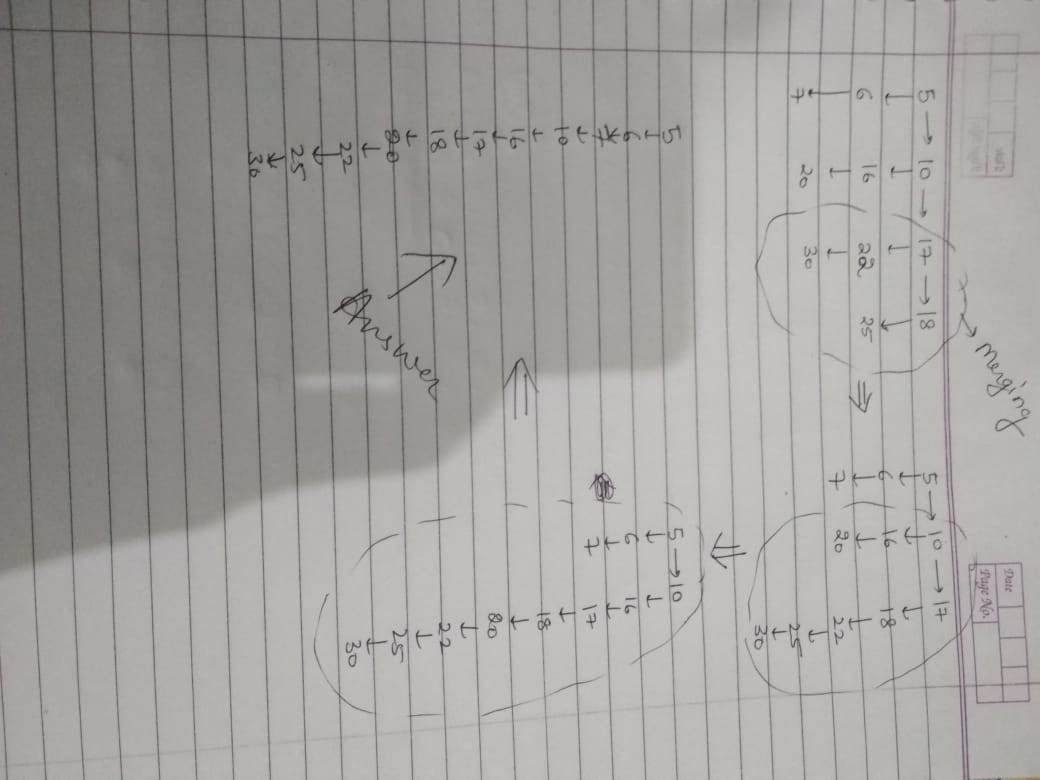 Date
Page No.
Merging
5 → 10 → 17 → 18
↓ ↓ ↓ ↓
6 16 22 25
↓ ↓ ↓
7 20 30
⇒
5 → 10 → 17
↓ ↓ ↓
6 16 18
↓ ↓ ↓
7 20 22
↓
25
↓
30
⇓
5 → 10
↓ ↓
6 16
↓ ↓
7 17
↓
18
↓
20
↓
22
↓
25
↓
30
⇐
5
↓
6
↓
7
↓
10
↓
16
↓
17
↓
18
↓
20
↓
22
↓
25
↓
30
Answer